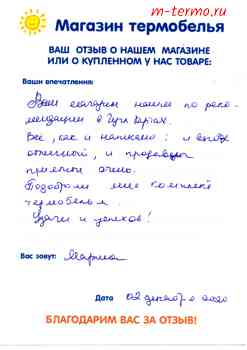 m-termo.ru
Магазин термобелья
ВАШ ОТЗЫВ О НАШЕМ МАГАЗИНЕ
ИЛИ О КУПЛЕННОМ У НАС ТОВАРЕ:
Ваши впечатления:
Ваш магазин нашли по реко-
мендации в Гугл картах.
Все, как и написано: и выбор
отличный, и продавцы
приятны очень.
Подобрали мне комплект
термобелья.
Удачи и успехов!
Вас зовут: Марина
Дата 02 декабря 2020
БЛАГОДАРИМ ВАС ЗА ОТЗЫВ!